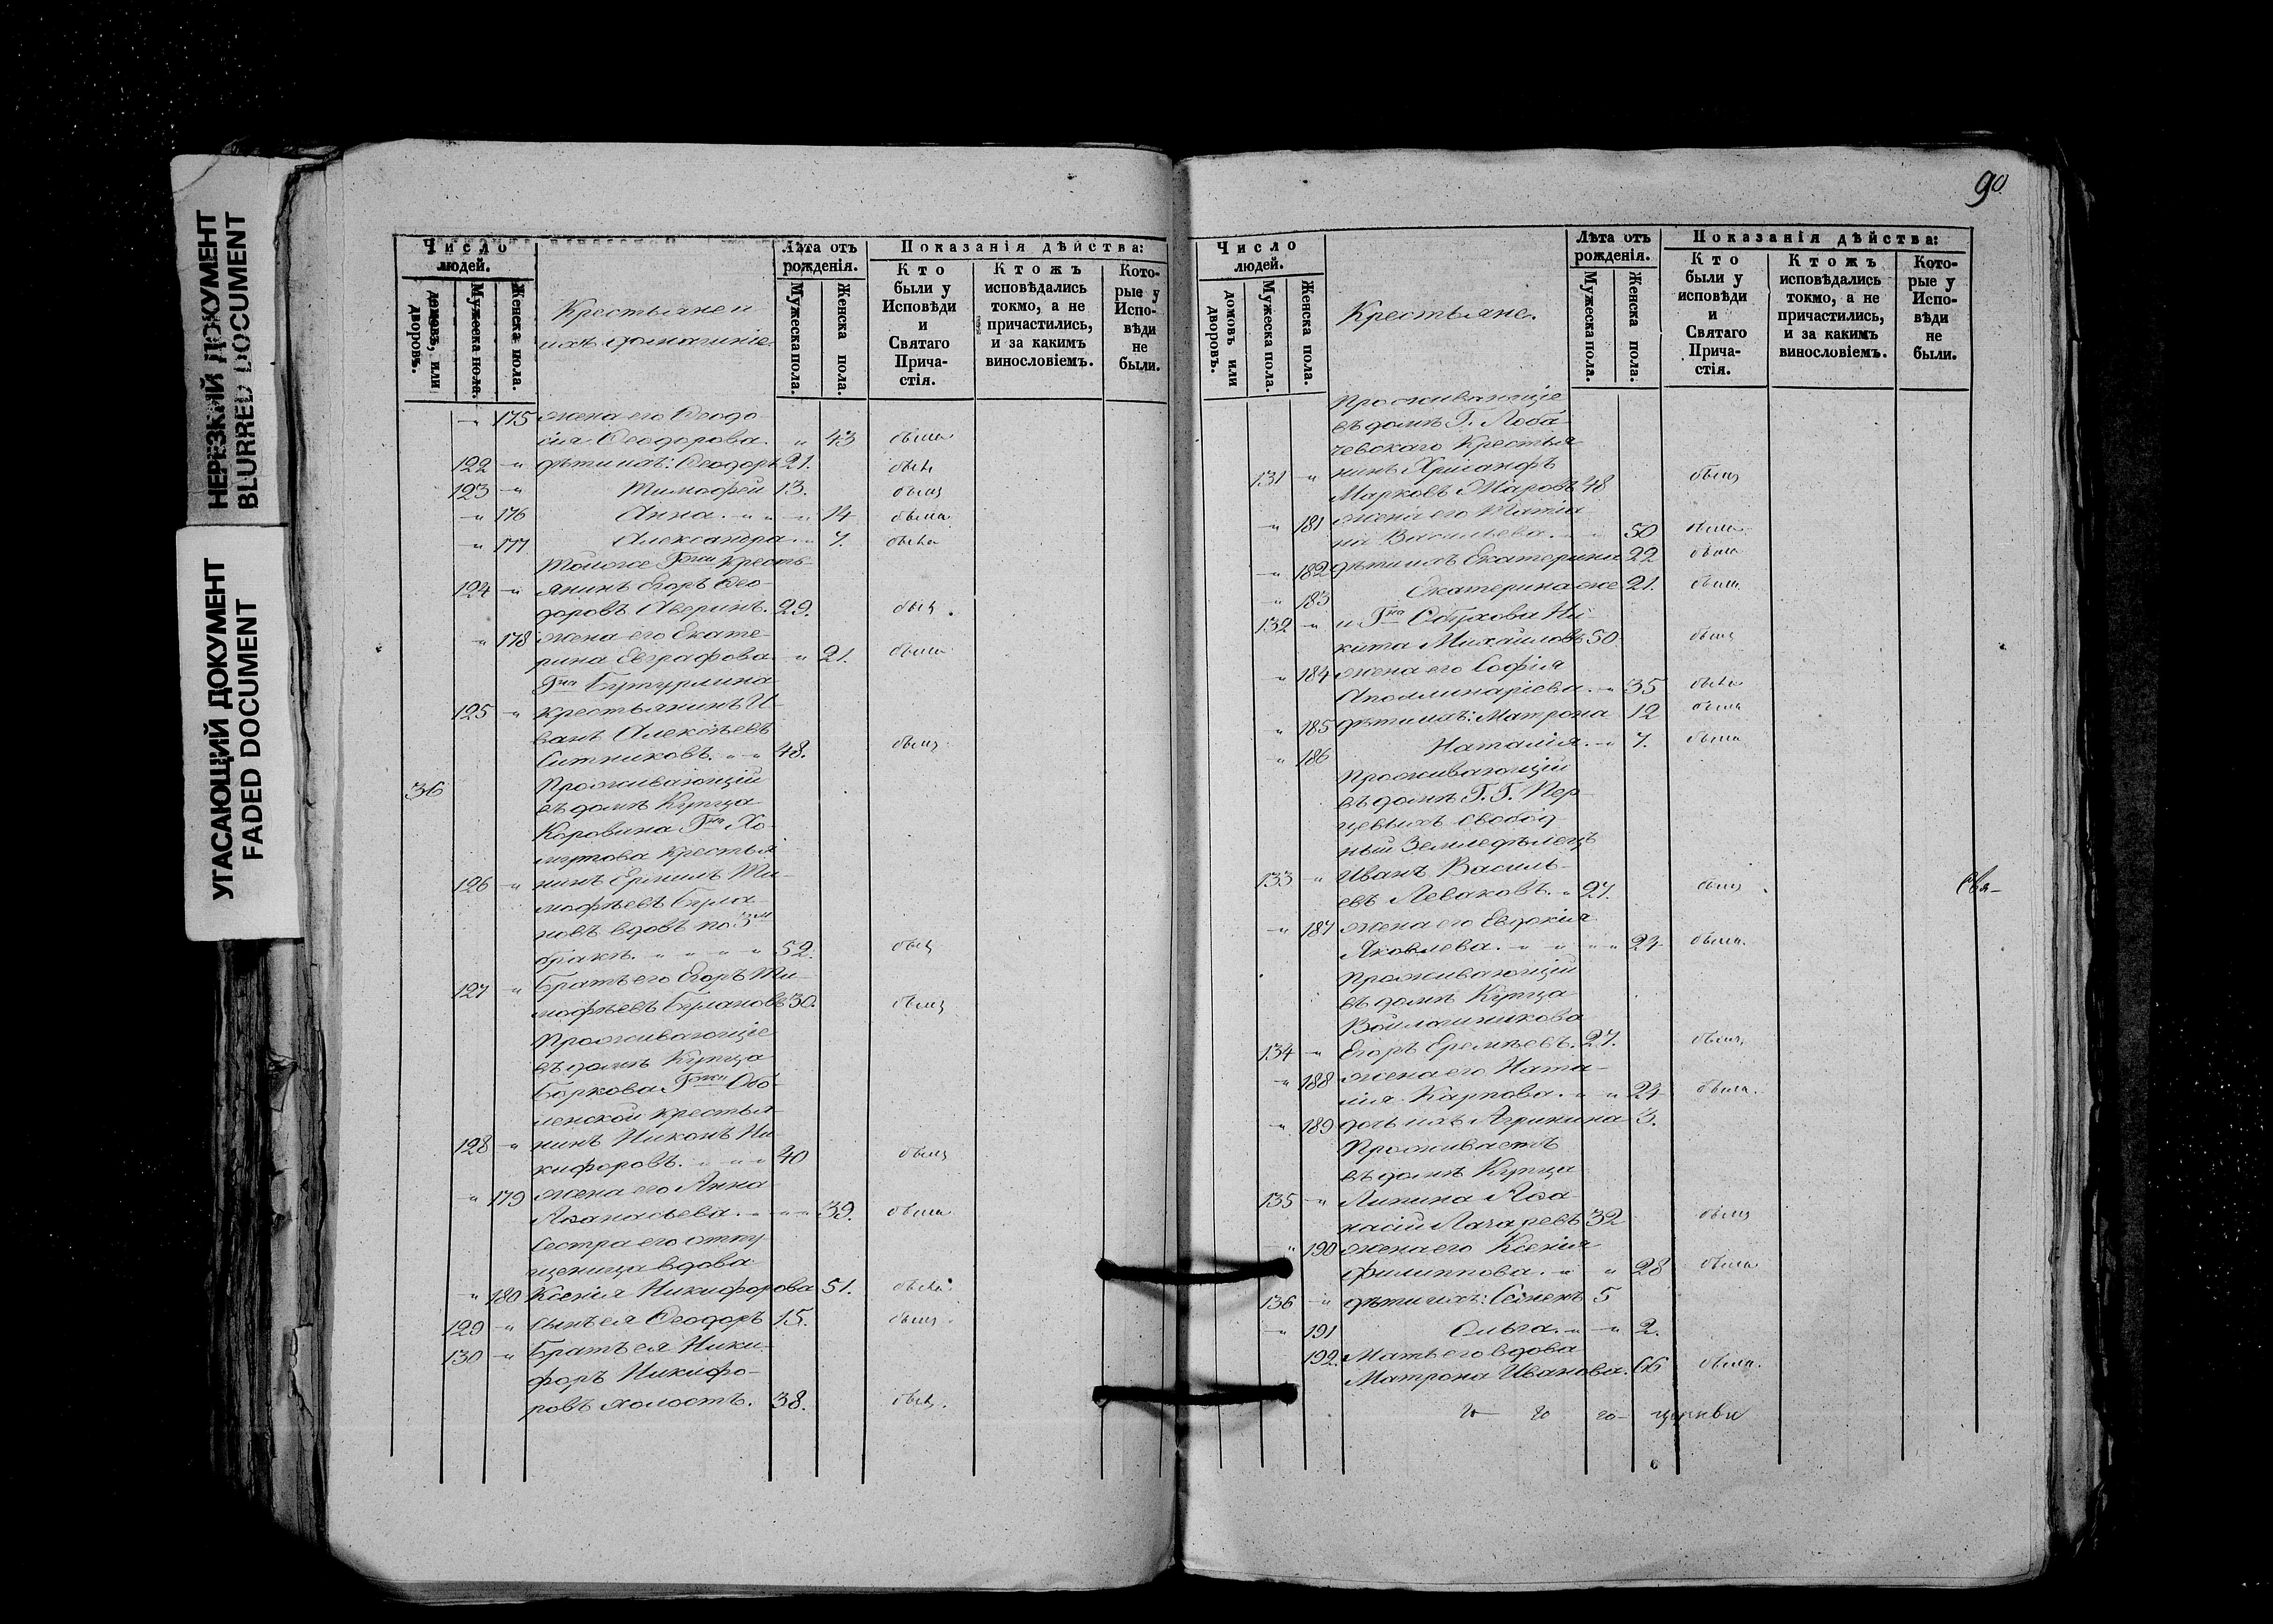 НЕРЕЗКИЙ ДОКУМЕНТ
BLURRED DOCUMENT
УГАСАЮЩИЙ ДОКУМЕНТ
FADED DOCUMENT
Число людей.
домовъ, или дворовъ.
Мужеска пола.
Женска пола.
Крестьяне и
ихъ домашніе
Лѣта отъ рожденія.
Мужеска пола.
Женска пола.
Показанія дѣйства:
Кто были у Исповѣди и Святаго Причастія.
Ктожъ исповѣдались токмо, а не причастились, и за какимъ винословіемъ.
Которые у Исповѣди не были.
175 жена его Ѳеодо-
сія Ѳеодорова. " 43 была
122 " дѣти ихъ: Ѳеодоръ 21. былъ
123 " Тимофей 13. былъ
" 176 Анна. " " " 14 была
" 177 Александра. " 7. была
Тойже Гжи кресть-
124 " янинъ Егоръ Ѳео-
доровъ Аверинъ. 29. былъ.
" 178 жена его Екате-
рина Евграфова. " 21. была
Гна Бутурлина
125 " крестьянинъ И-
ванъ Алексѣевъ
Ситниковъ. " " 48. былъ
36 Проживающіи
въ домѣ Купца
Коровина Гна Хо-
мутова крестья
126 " нинъ Ермилъ Ти-
мофѣевъ
вдовъ по 3м
бракѣ. " " " " 52. былъ
127 " Братъ его Егоръ Ти-
мофѣевъ 30. былъ
Проживающіе
въ домѣ Купца
Боркова Гжи Обо-
ленской крестья
128 " нинъ Никонъ Ни
кифоровъ. " " " 40 былъ
" 179 жена его Анна
Аѳанасьева. " " " 39. была
Сестра его отпу
щеница вдова
" 180 Ксенія Никифорова 51. была
129 " сынъ ея Ѳеодоръ 15. былъ
130 " Братъ ея Ники-
форъ Никифо-
ровъ холостъ. 38. былъ.
90
Число людей.
домовъ или дворовъ.
Мужеска пола.
Женска пола.
Крестьяне.
Лѣта отъ рожденія.
Мужеска пола.
Женска пола.
Показанія дѣйства:
Кто были у исповѣди и Святаго Причастія.
Ктожъ исповѣдались токмо, а не причастились, и за какимъ винословіемъ.
Которые у Исповѣди не были.
Проживающіе
въ домѣ Г. Лоба-
чевскаго Крестья
131 " нинъ Хрисанфъ
Марковъ 48 былъ
" 181 жена его Татія
на Васильева. " " 50 была
" 182 дѣти ихъ Екатерина 22 была
" 183 Екатерина же 21. была
132 " и Гна Обухова Ни-
кита Михайловъ 50. былъ
" 184 жена его Софія
Аполлинаріева. " 35 была
" 185 дѣти ихъ: Матрона 12 была
" 186 Наталія. " 7. была
Проживающіи
въ домѣ Г. Г. Пер-
цевыхъ свобод
ный Земледѣлецъ
133 " Иванъ Василь-
евъ Леваковъ. " 27. былъ
" 187 жена его Евдокія
Яковлева. " " " " 24 была.
Проживающіи
въ домѣ Купца
Войлошникова
134 " Егоръ Еремѣевъ. 27. былъ,
" 188 жена его Ната-
лія Карпова. " " 24 была.
" 189 дочь ихъ Агрипина 3.
Проживаетъ
въ домѣ Купца
135 " Липина Аѳа
насій 32 былъ
" 190 жена его Ксенія
Филиппова. " " 28 была
136 " дѣти ихъ: Семенъ 5
" 191 Ольга. " " 2.
192. Мать его вдова
Матрона Иванова. 66 была.
церкви
Свя-